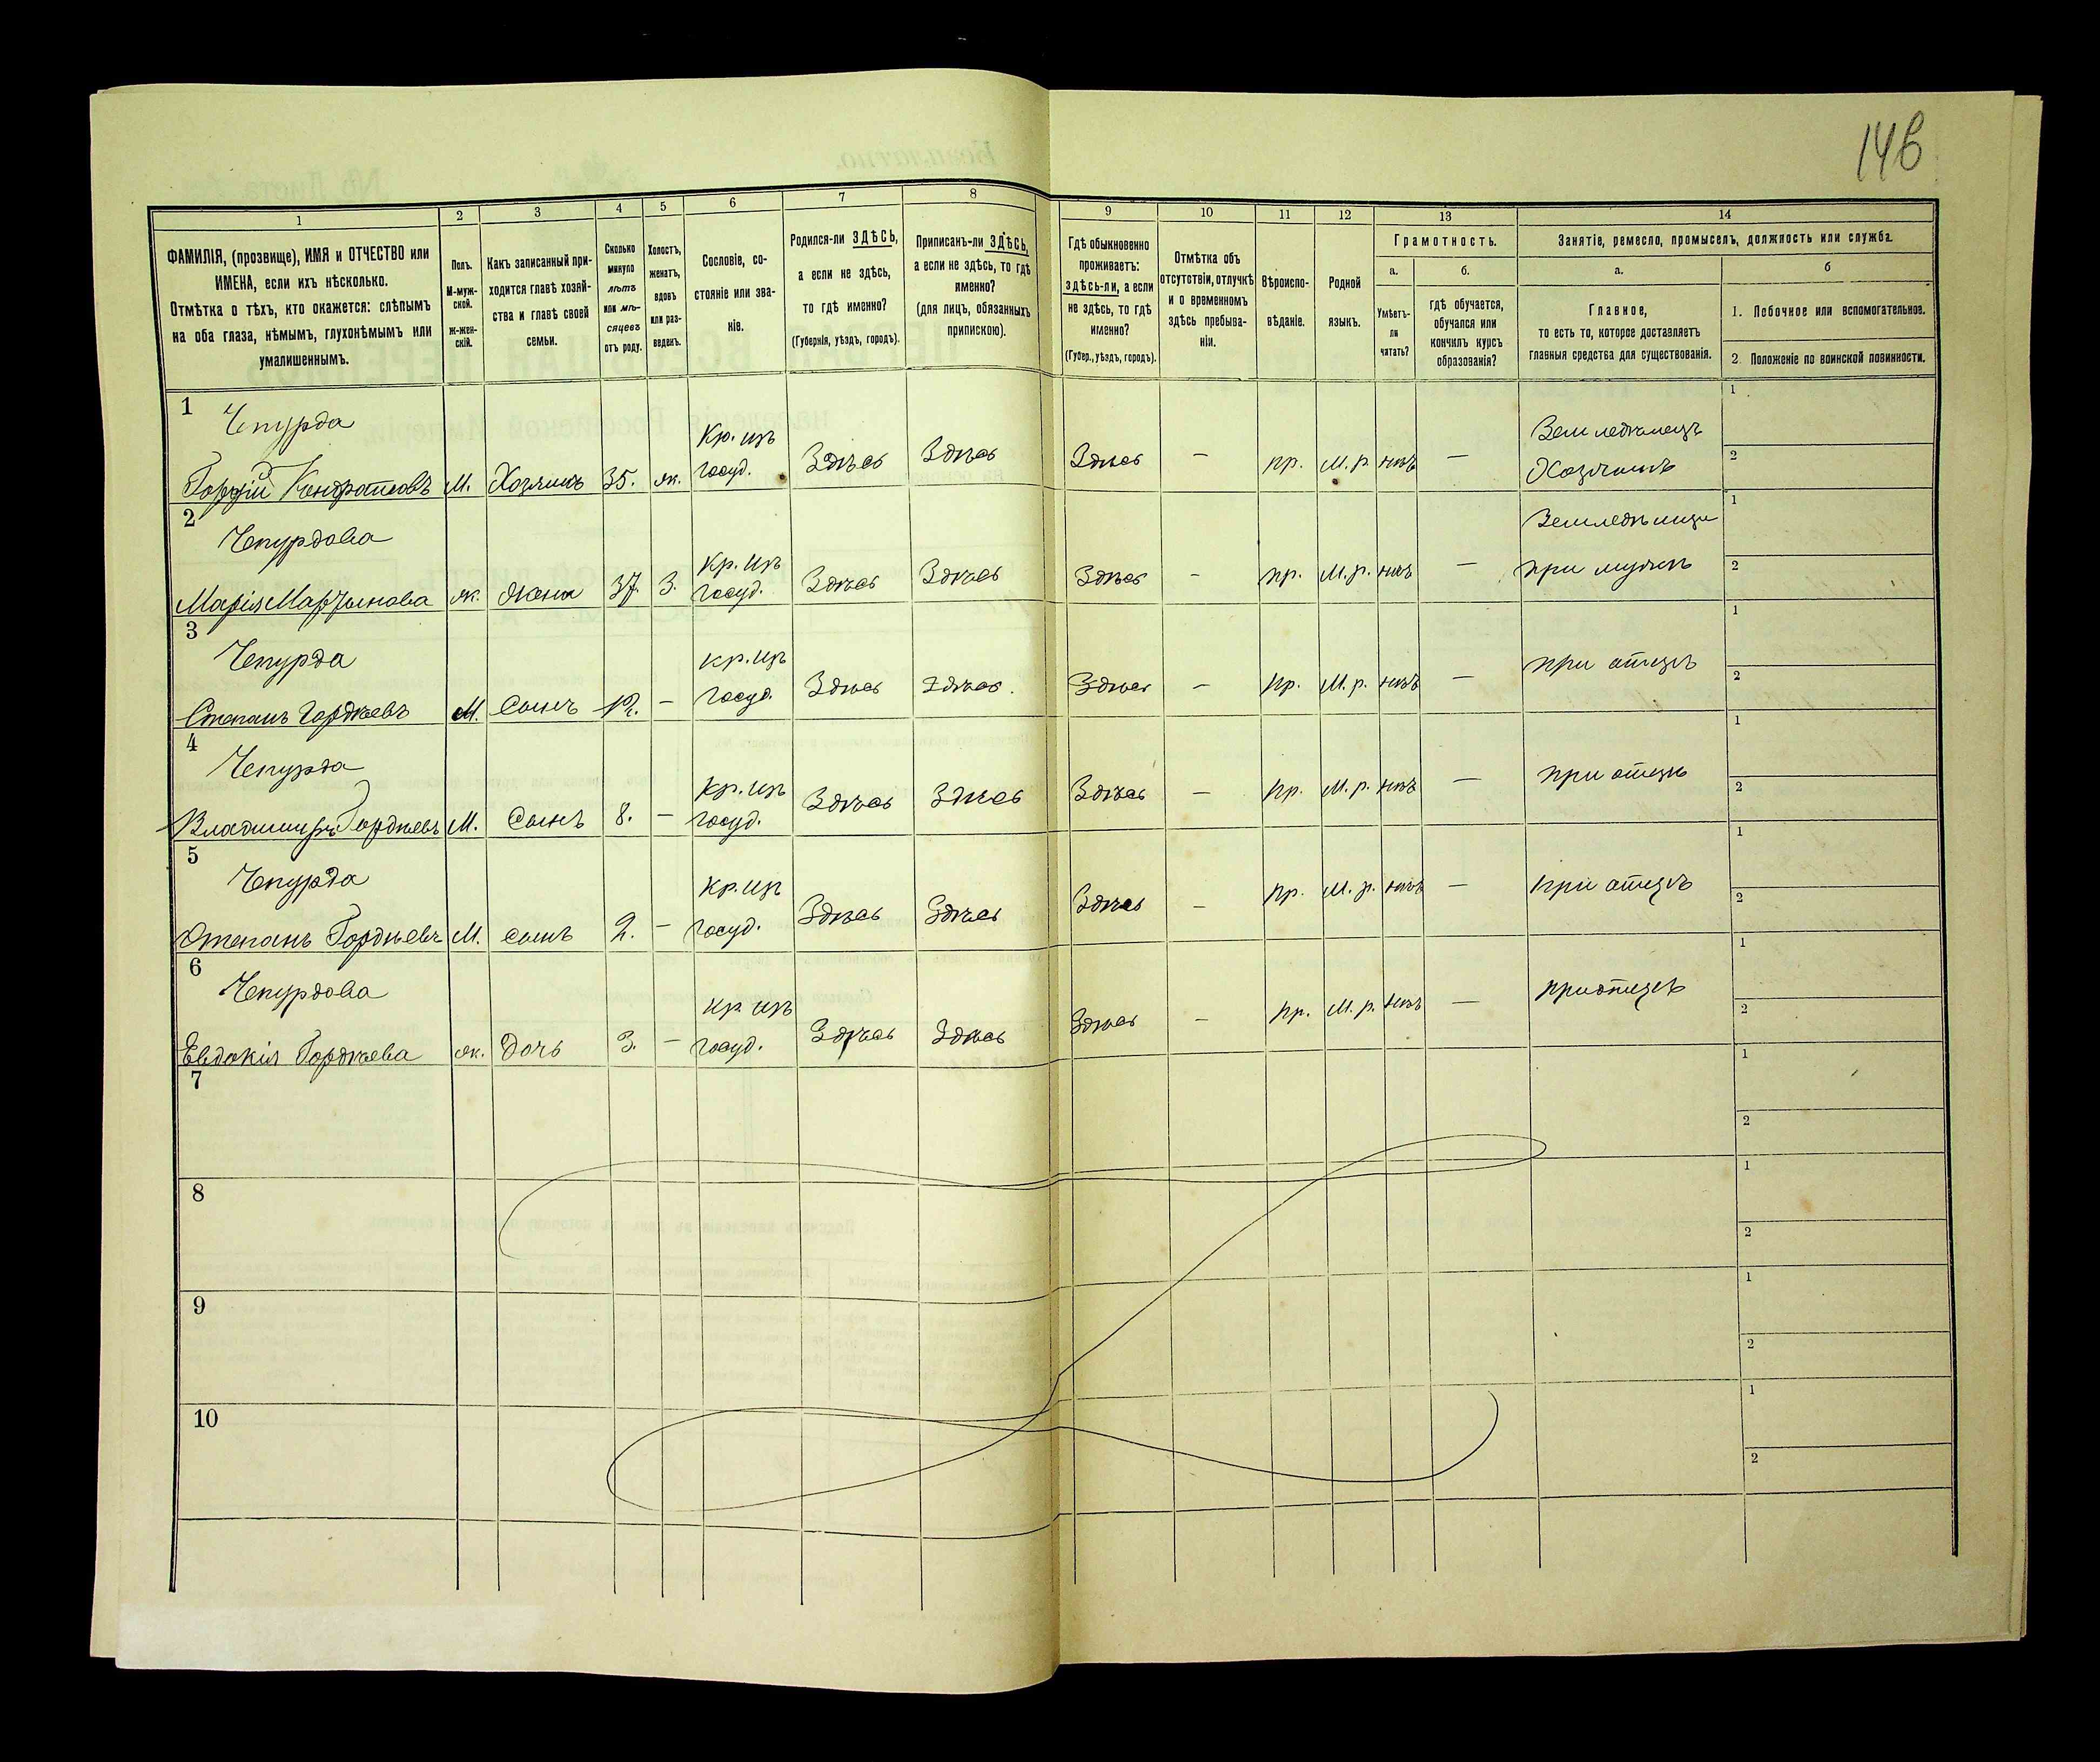 146
1
2
3
4
5
6
7
8
9
10
11
12
13
14
ФАМИЛІЯ, (прозвище), ИМЯ и ОТЧЕСТВО или
ИМЕНА, если ихъ нѣсколько.
Отмѣтка о тѣхъ, кто окажется: слѣпымъ
на оба глаза, нѣмымъ, глухонѣмымъ или
умалишеннымъ.
Полъ.
М-муж-
ской.
ж-жен-
скій.
Какъ записанный при-
ходится главѣ хозяй-
ства и главѣ своей
семьи.
Сколько
минуло
лѣтъ
или мѣ-
сяцевъ
отъ роду.
Холостъ,
женатъ,
вдовъ
или раз-
веденъ.
Сословіе, со-
стояніе или зва-
ніе.
Родился-ли ЗДѢСЬ,
а если не здѣсь,
то гдѣ именно?
(Губернія, уѣздъ, городъ).
Приписанъ-ли ЗДѢСЬ,
а если не здѣсь, то гдѣ
именно?
(для лицъ, обязанныхъ
припискою).
Гдѣ обыкновенно
проживаетъ:
здѣсь-ли, а если
не здѣсь, то гдѣ
именно?
(Губер., уѣздъ, городъ).
Отмѣтка объ
отсутствіи, отлучкѣ
и о временномъ
здѣсь пребыва-
ніи.
Вѣроиспо-
вѣданіе.
Родной
языкъ.
Грамотность.
а.
Умѣетъ-
ли
читать?
б.
гдѣ обучается,
обучался или
кончилъ курсъ
образованія?
Занятіе, ремесло, промыселъ, должность или служба.
а.
Главное,
то есть то, которое доставляетъ
главныя средства для существованія.
б
1. Побочное или вспомогательное.
2. Положеніе по воинской повинности.
1
Чепурда
Гордій Кондратовъ М. Хозяинъ 35. ж. Кр. изъ
госуд. Здѣсь Здѣсь Здѣсь — пр. М. р. нѣтъ — Земледѣлецъ
Хозяинъ
1
2
2
Чепурдова
Марія Мартынова ж. Жена 37. З. Кр. изъ
госуд. Здѣсь Здѣсь Здѣсь - пр. М. р. нѣтъ —
при мужѣ
1
2
3
Чепурда
Степанъ Гордѣевъ М. Сынъ 12. — кр. изъ
госуд Здѣсь Здѣсь. Здѣсь — пр. М. р. нѣтъ — при отцѣ
1
2
4
Чепурда
Владимиръ Гордѣевъ М. Сынъ 8. — Кр. изъ
госуд. Здѣсь Здѣсь Здѣсь — пр. М. р. нѣтъ — при отцѣ
1
2
5
Чепурда
Степанъ Гордѣевъ М. сынъ 2. — Кр. изъ
госуд. Здѣсь Здѣсь Здѣсь — пр. М. р. нѣтъ — при отцѣ
1
2
6
Чепурдова
Евдокія Гордѣева ж. Дочь 3. — кр. изъ
госуд. Здѣсь Здѣсь Здѣсь — пр. М. р. нѣтъ — при отцѣ
1
2
7
1
2
8
1
2
9
1
2
10
1
2